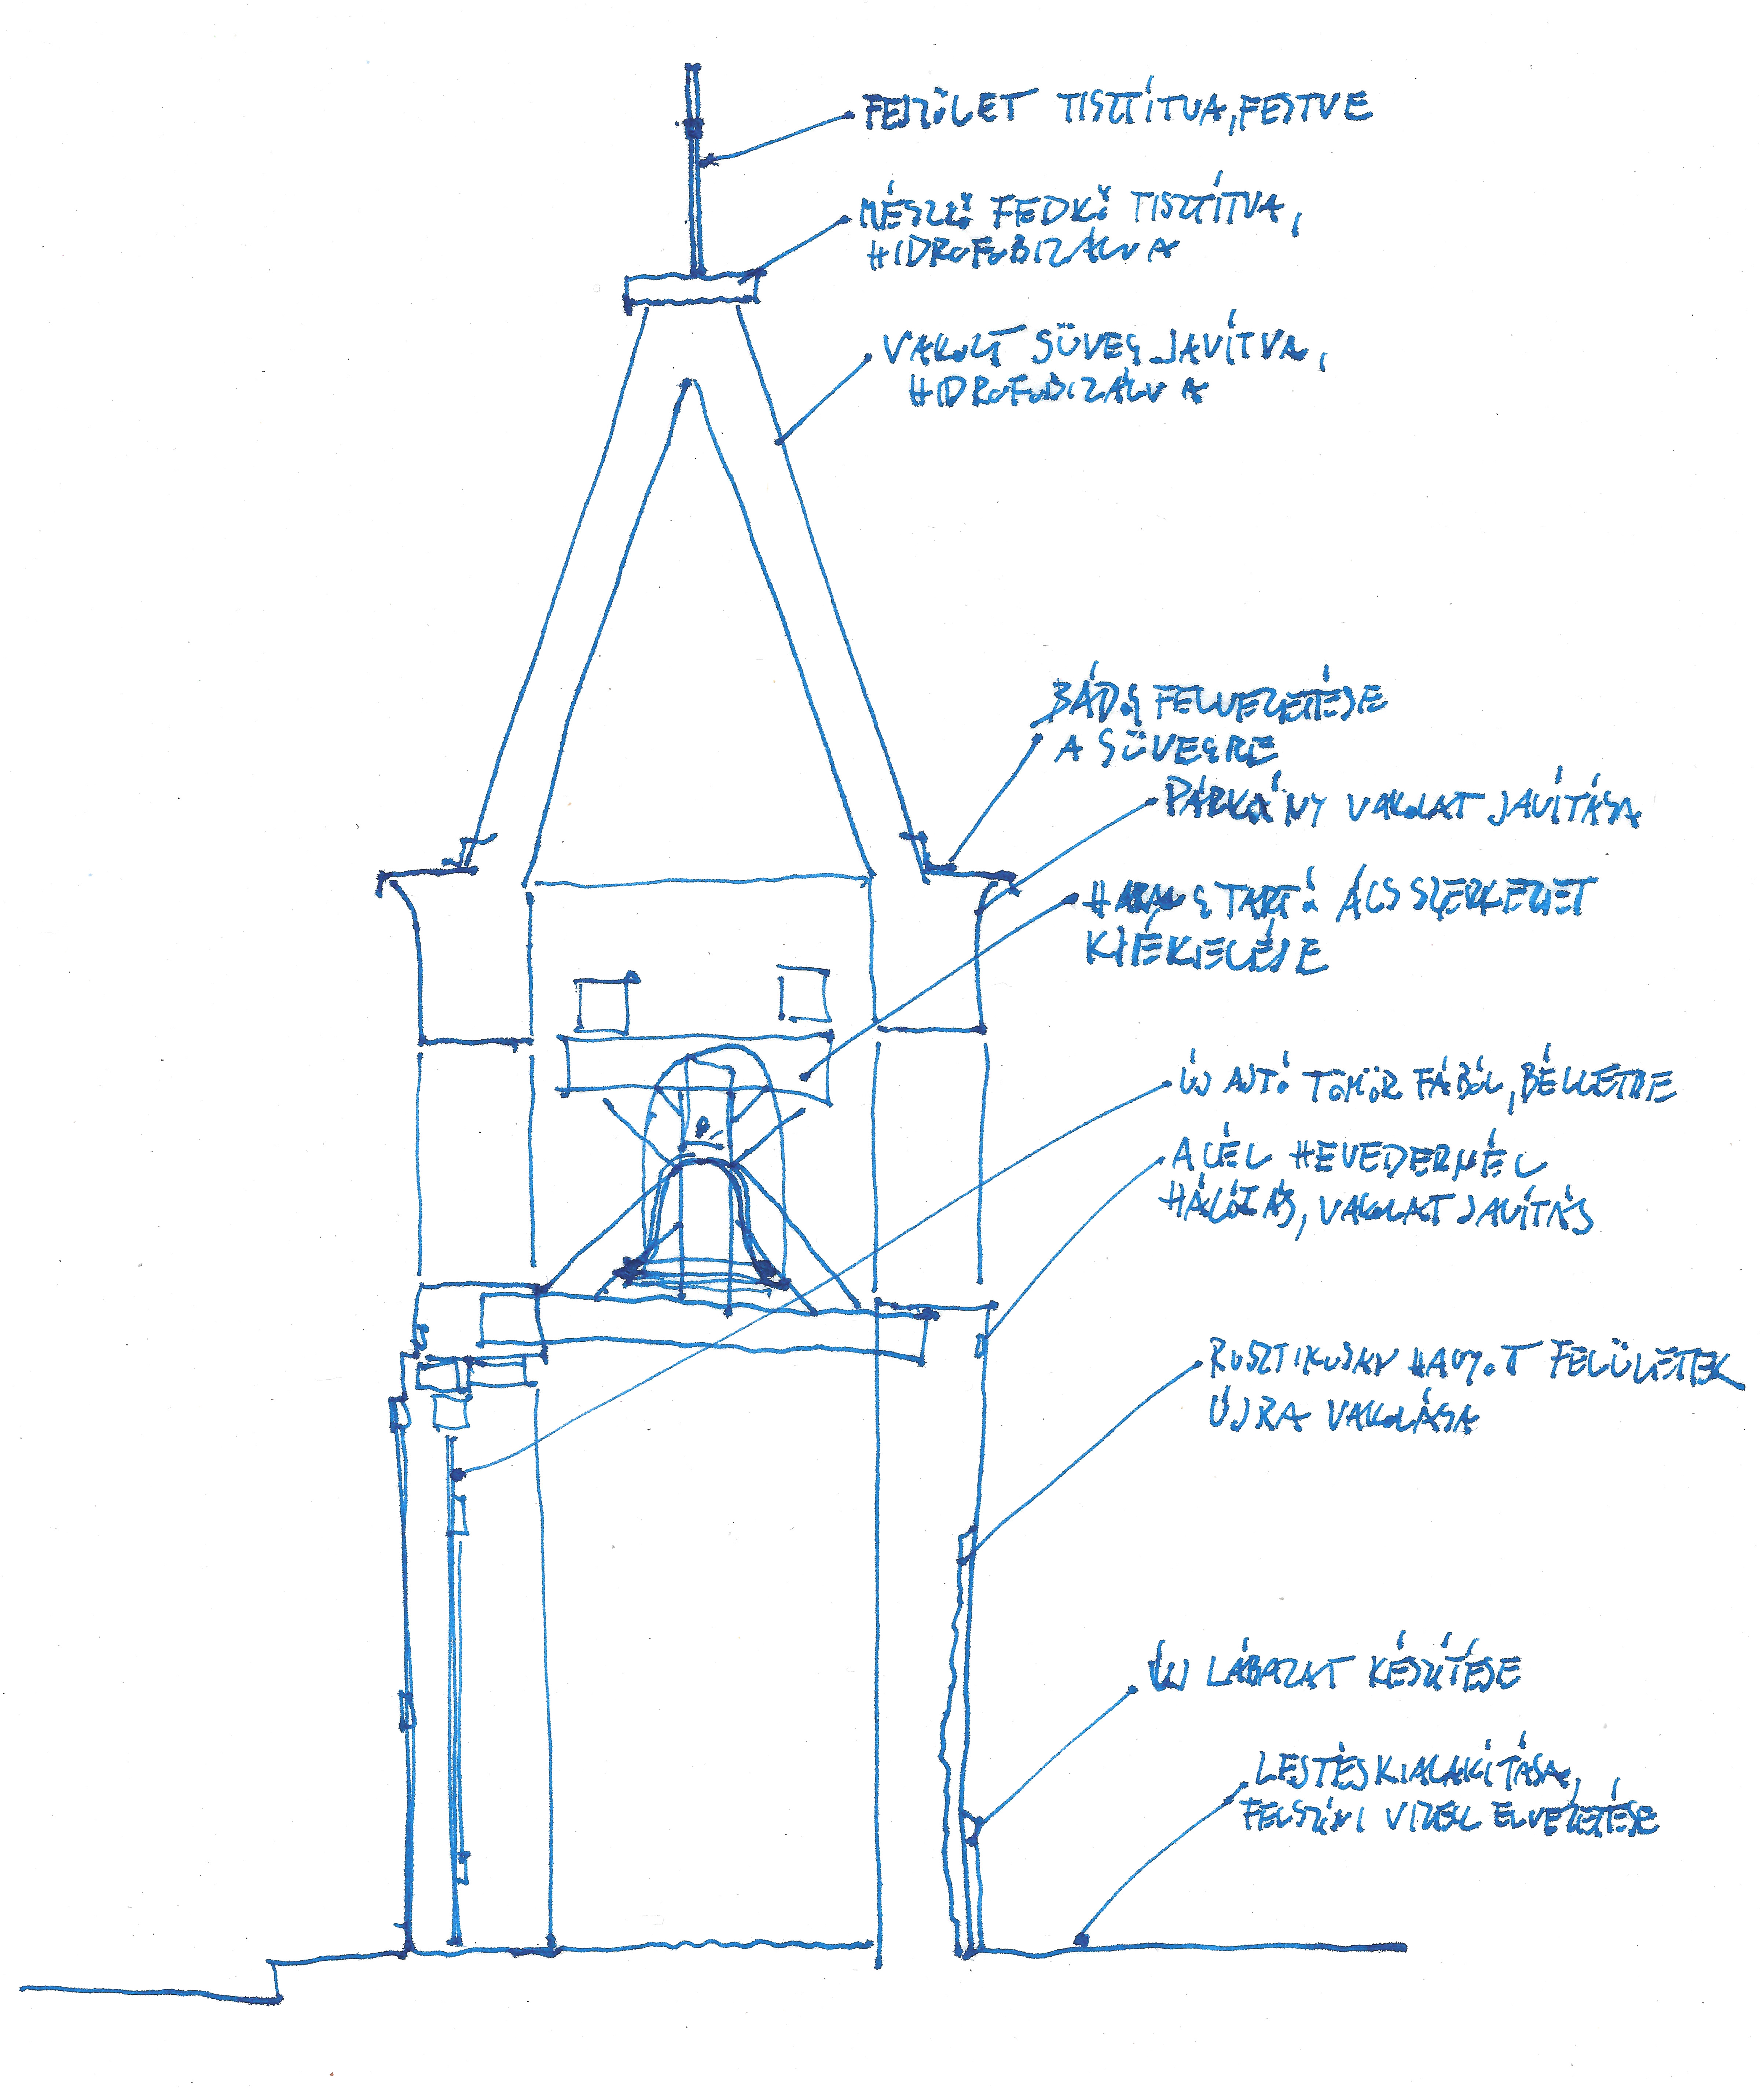 FESZÜLET TISZTÍTVA, FESTVE
MÉSZKŐ FEDKŐ TISZTÍTVA,
HIDROFOBIZÁLVA
VAKOLT SÜVEG JAVÍTVA,
HIDROFOBIZÁLVA
BÁDOG FELVEZETÉSE
A SÜVEGRE
PÁRKÁNY VAKOLAT JAVÍTÁSA
HARANG TARTÓ ÁCSSZERKEZET
KIÉKELÉSE
ÚJ AJTÓ TÖMÖR FÁBÓL, BÉLLETBE
ACÉL HEVEDERNÉL
HÁLÓZÁS, VAKOLAT JAVÍTÁS
RUSZTIKUSAN HAGYOTT FELÜLETEK
ÚJRA VAKOLÁSA
ÚJ LÁBAZAT KÉSZÍTÉSE
LEJTÉS KIALAKÍTÁSA,
FELSZÍNI VIZEK ELVEZETÉSE